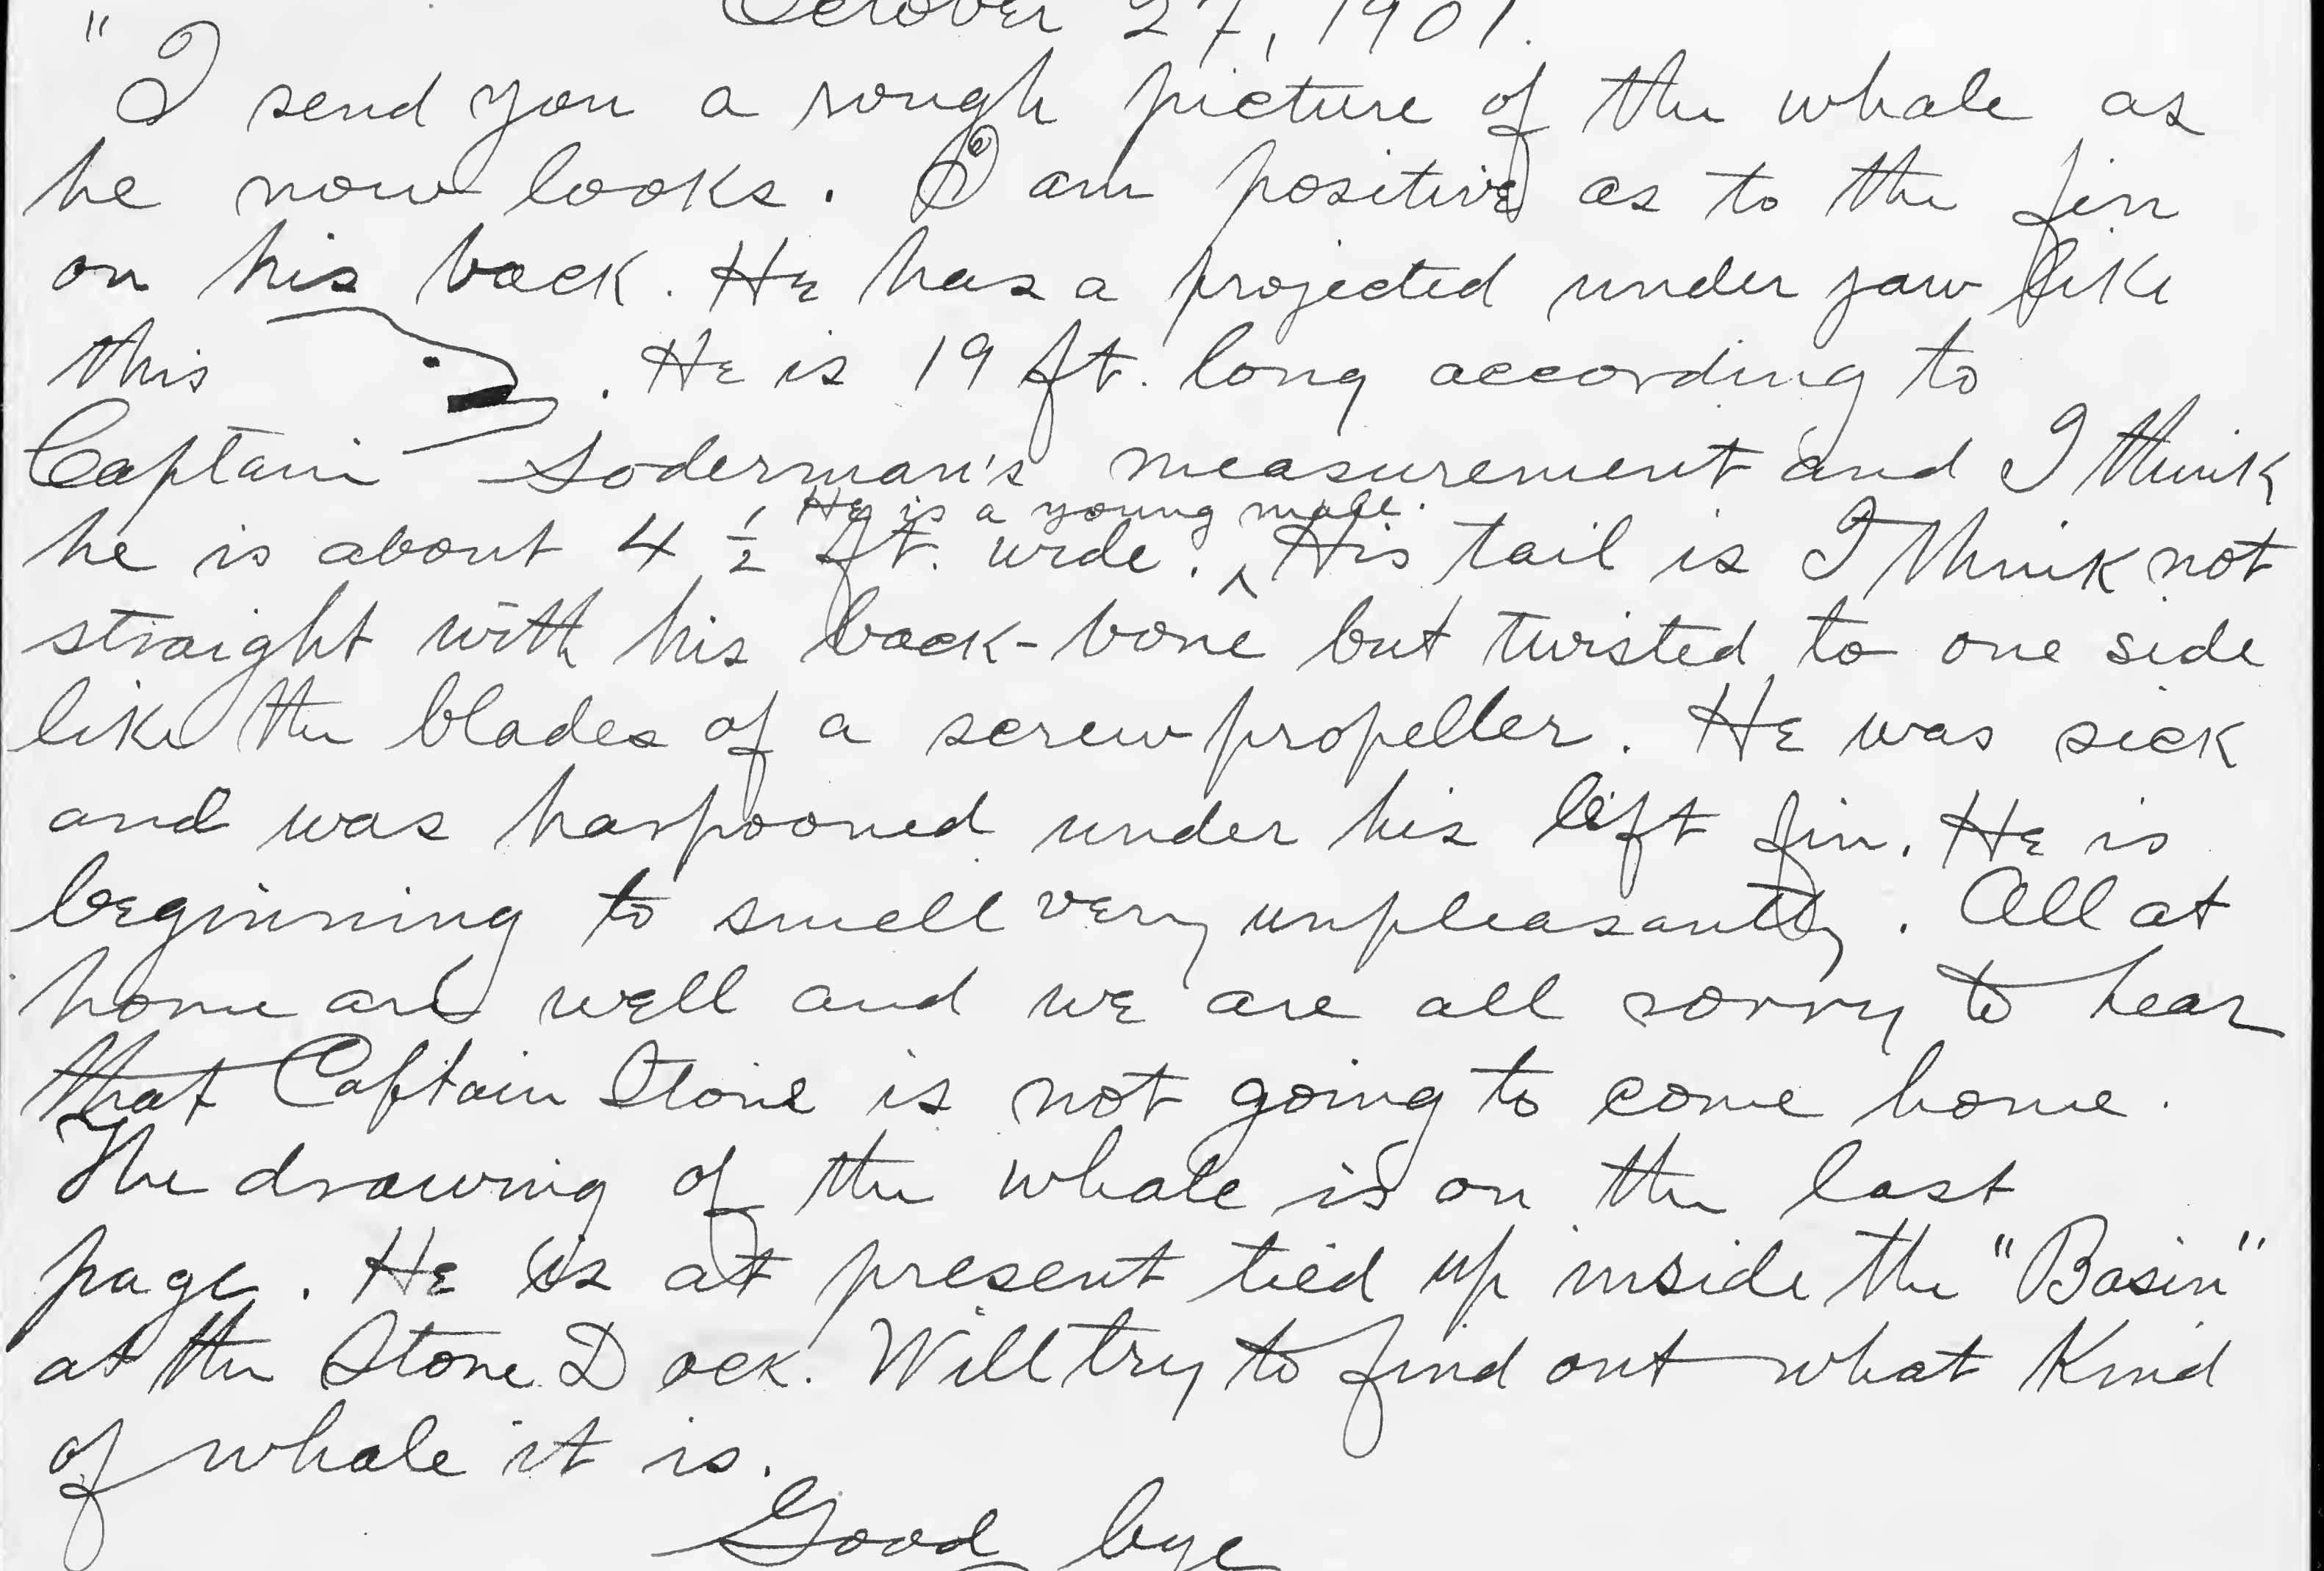 October 27, 1901.
"I send you a rough picture of the whale as
he now looks. I am positive as to the fin
on his back. He has a projected under jaw like
this . He is 19 ft. long according to
Captain Soderman's measurement and I think
he is about 4 1/2 ft. wide. ^ He is a young male. His tail is I think not
straight with his back-bone but twisted to one side
like the blades of a screw propeller. He was sick
and was harpooned under his left fin. He is
beginning to smell very unpleasantly. All at
home are well and we are all sorry to hear
that Captain Stone is not going to come home.
The drawing of the whale is on the last
page. He is at present tied up inside the "Basin"
at the Stone Dock. Will try to find out what kind
of whale it is.
Good bye